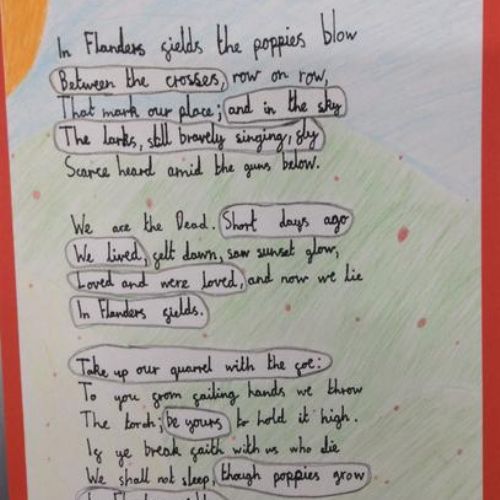 In Flanders fields the poppies blow
Between the crosses, row on row,
That mark our place; and in the sky
The larks, still bravely singing, fly
Scarce heard amid the guns below.
We are the Dead. Short days ago
We lived, felt dawn, saw sunset glow,
Loved and were loved, and now we lie
In Flanders fields.
Take up our quarrel with the foe:
To you from failing hands we throw
The torch; be yours to hold it high.
If ye break faith with us who die
We shall not sleep, though poppies grow
In Flanders fields